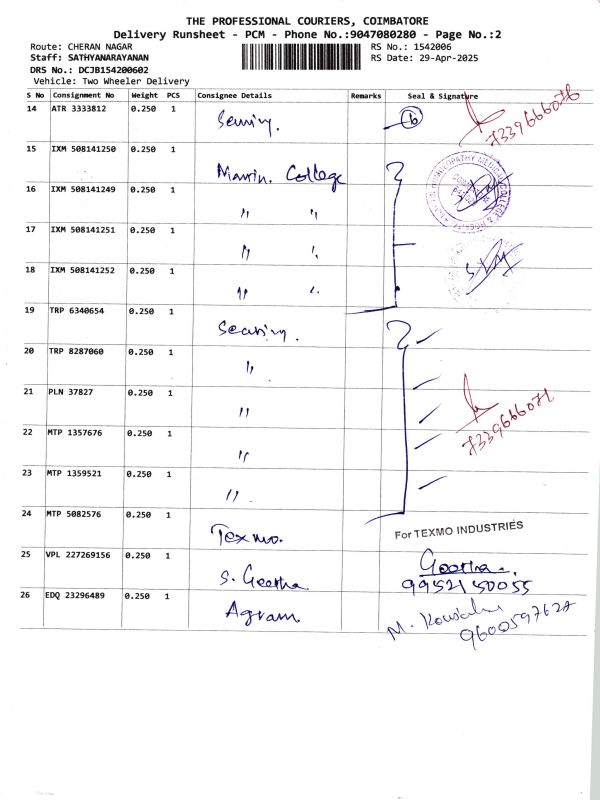 THE PROFESSIONAL COURIERS, COIMBATORE
Delivery Runsheet - PCM - Phone No.:9047080280 - Page No.:2
Route: CHERAN NAGAR RS No.: 1542006
Staff: SATHYANARAYANAN RS Date: 29-Apr-2025
DRS No.: DCJB154200602
Vehicle: Two Wheeler Delivery
S No Consignment No Weight PCS Consignee Details Remarks Seal & Signature
14 ATR 3333812 0.250 1
15 IXM 508141250 0.250 1 College
16 IXM 508141249 0.250 1 〃 〃
17 IXM 508141251 0.250 1 〃 〃
18 IXM 508141252 0.250 1 〃 〃
19 TRP 6340654 0.250 1
20 TRP 8287060 0.250 1 〃
21 PLN 37827 0.250 1 〃
22 MTP 1357676 0.250 1 〃
23 MTP 1359521 0.250 1 〃
24 MTP 5082576 0.250 1 Texmo. For TEXMO INDUSTRIES
25 VPL 227269156 0.250 1 S. Geetha Geetha
9952150055
26 EDQ 23296489 0.250 1 Agram